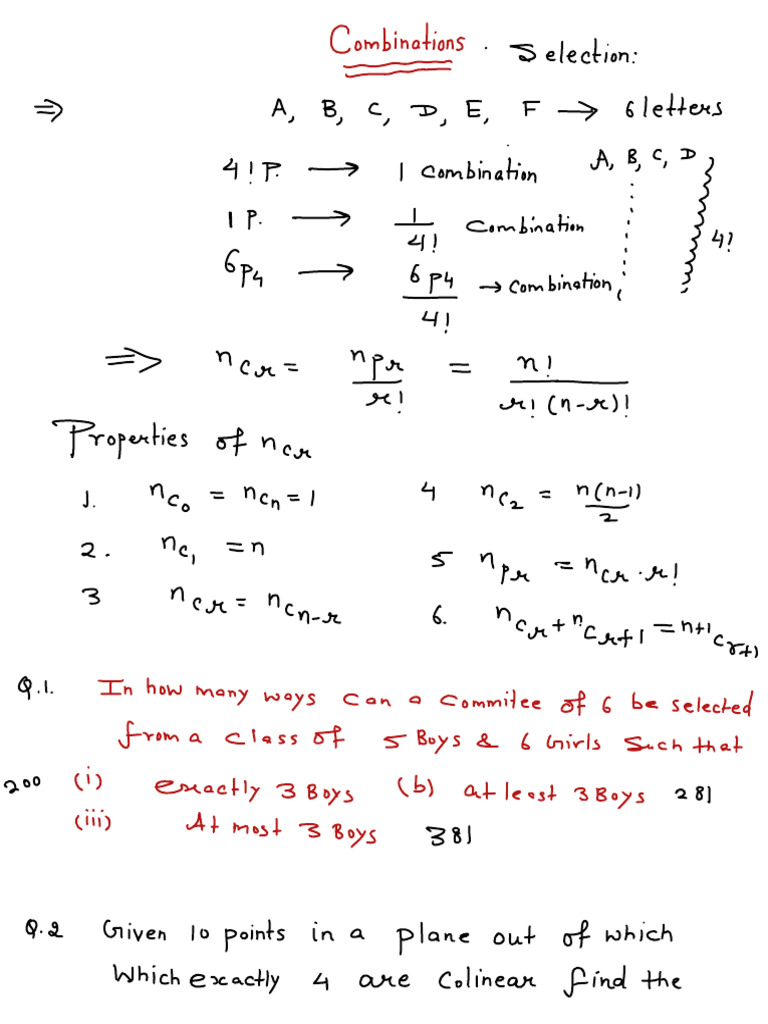 Combinations . Selection:
⇒ A, B, C, D, E, F → 6 letters
4! P. → 1 Combination A, B, C, D
1 P. → 1/4! Combination 4!
6P4 → 6P4/4! → Combination
⇒ nCr = nPr/r! = n!/r!(n-r)!
Properties of nCr
1. nC0 = nCn = 1 4 nC2 = n(n-1)/2
2. nC1 = n 5 nPr = nCr . r!
3 nCr = nCn-r 6. nCr + nCr+1 = n+1Cr+1
Q.1. In how many ways can a Commitee of 6 be selected
from a class of 5 Boys & 6 Girls Such that
200 (i) exactly 3 Boys (b) at least 3 Boys 281
(iii) At most 3 Boys 381
Q.2 Given 10 points in a plane out of which
Which exactly 4 are Colinear find the